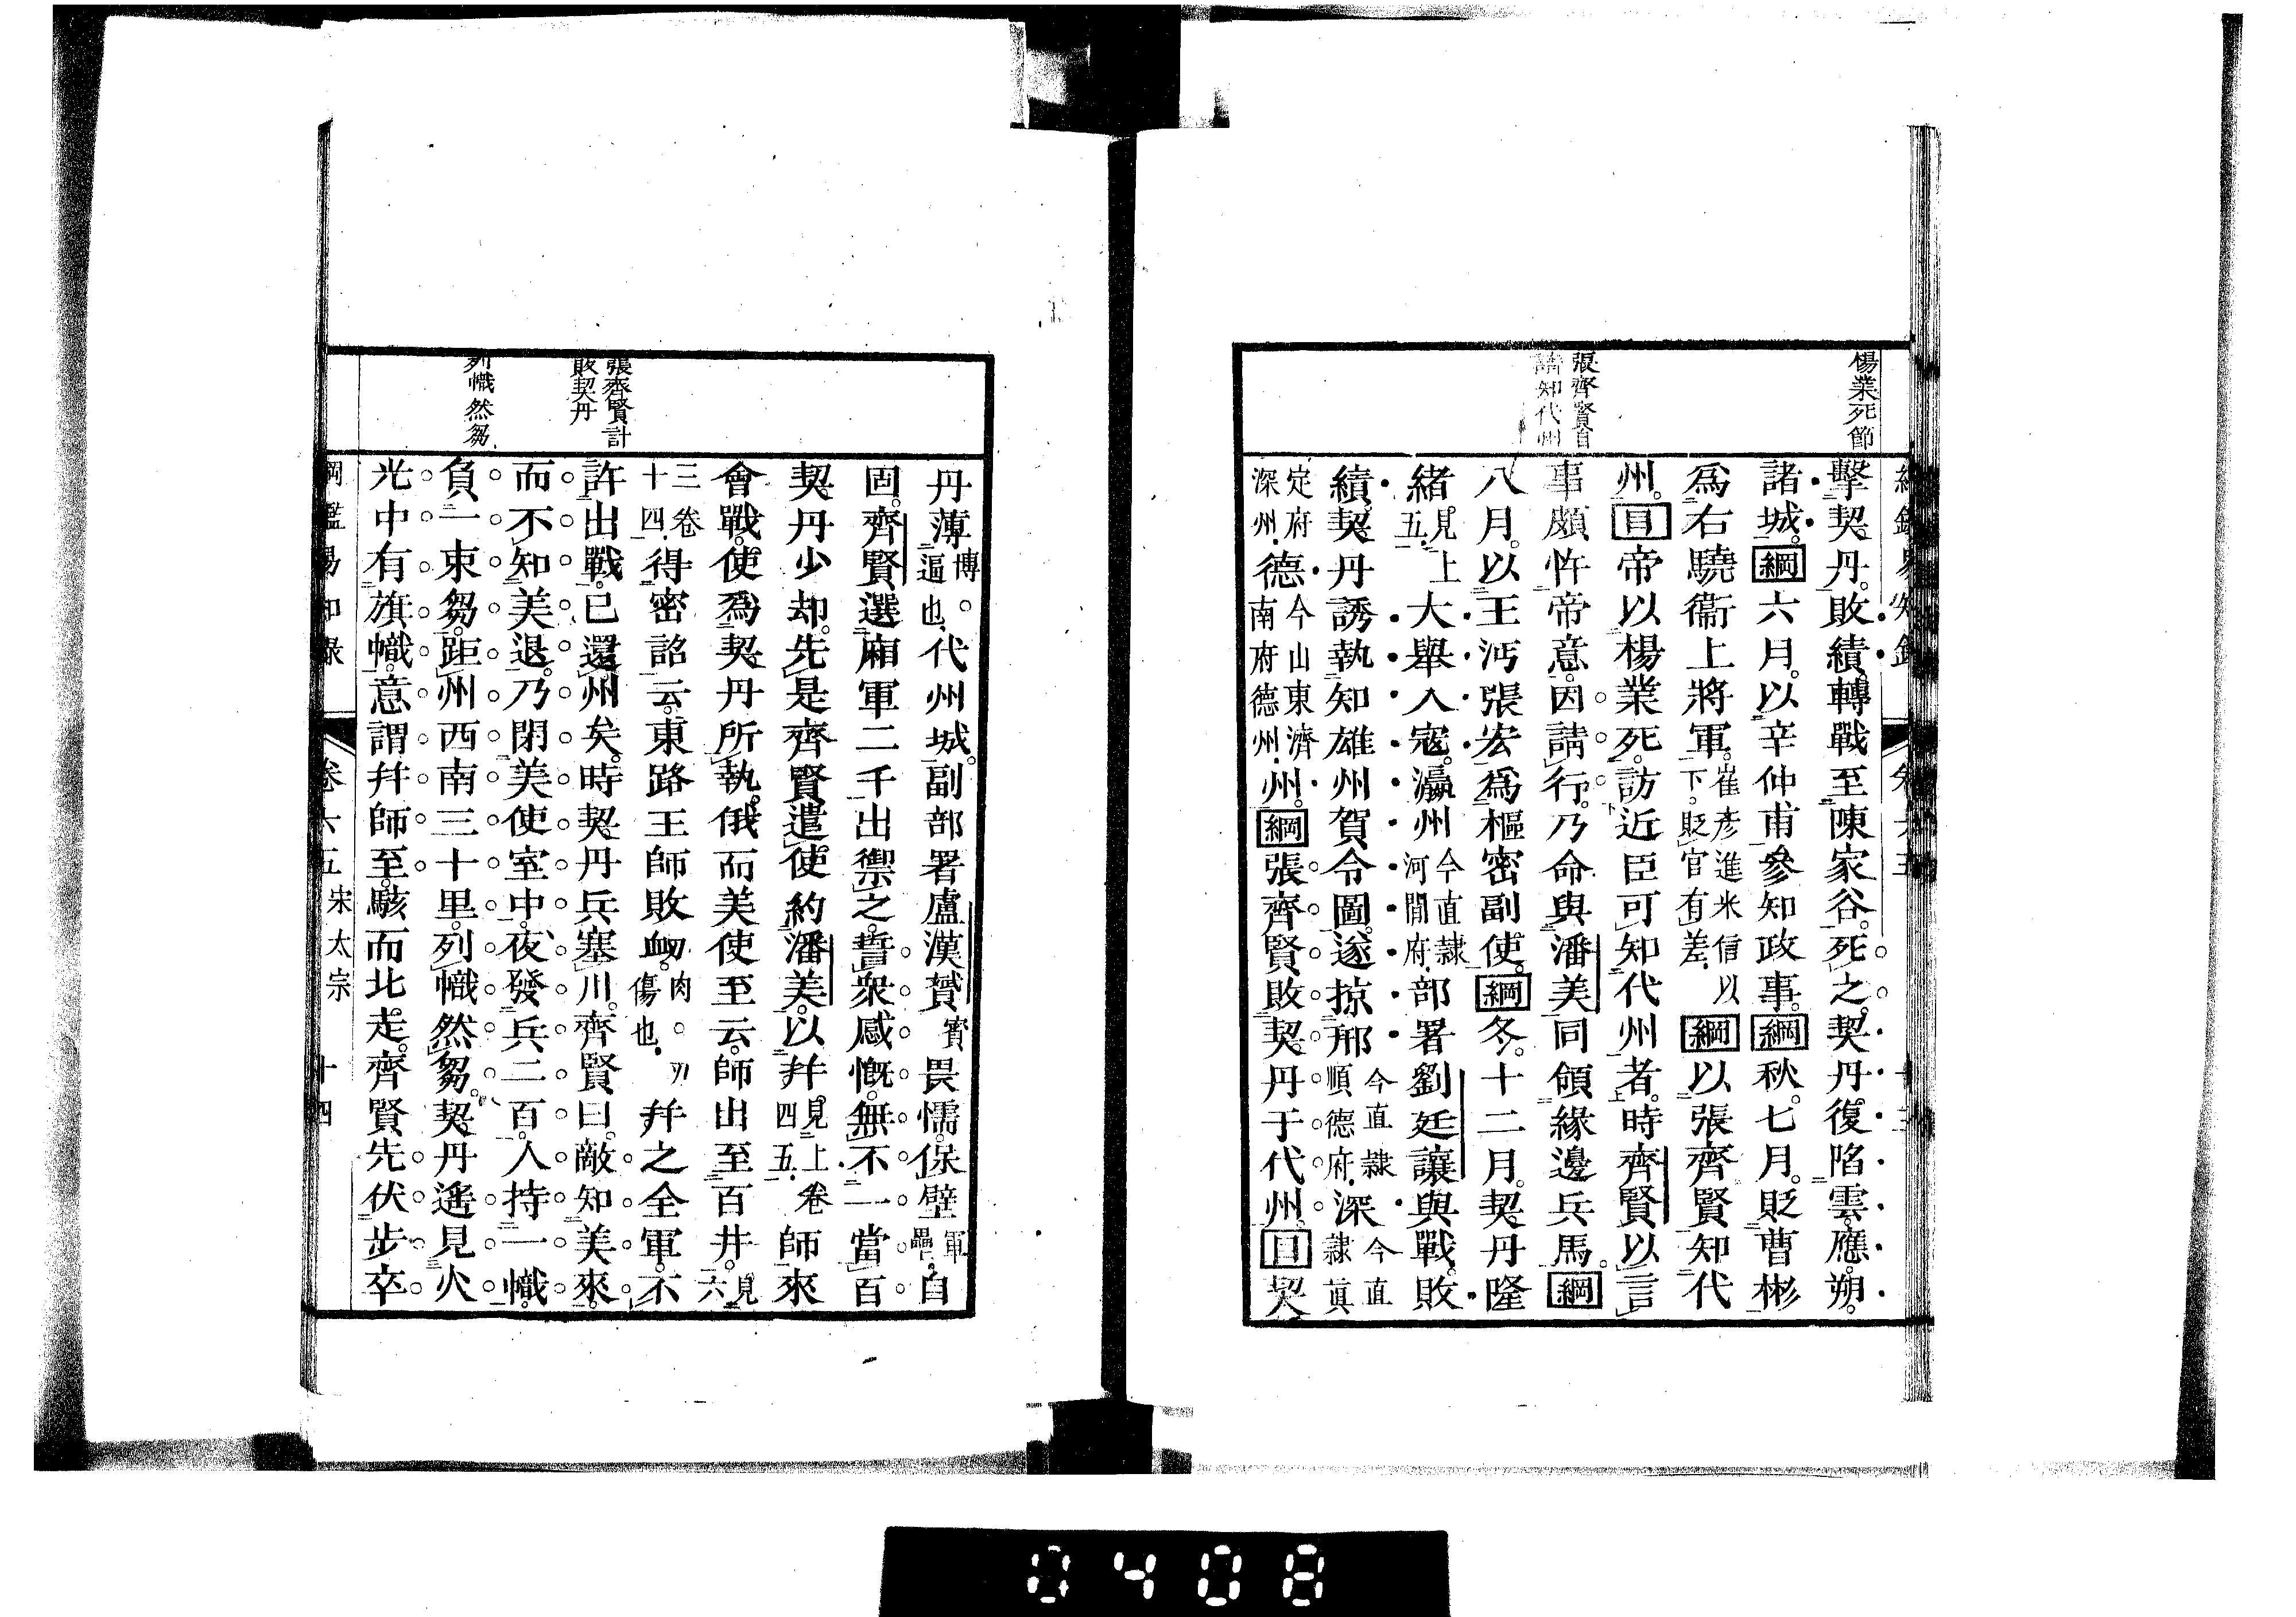 楊業死節
張齊賢自
請知代州
擊契丹敗績轉戰至陳家谷死之契丹復陷雲應朔
諸城綱六月以辛仲甫參知政事綱秋七月貶曹彬
爲右驍衞上將軍崔彥進米信以下貶官有差綱以張齊賢知代
州目帝以楊業死訪近臣可知代州者時齊賢以言
事頗忤帝意因請行乃命與潘美同領緣邊兵馬綱
八月以王沔張宏爲樞密副使綱冬十二月契丹隆
緒見上五大舉入寇瀛州今直隸河間府部署劉廷讓與戰敗
績契丹誘執知雄州賀令圖遂掠邢今直隸順德府深今直隸眞
定府深州德今山東濟南府德州州綱張齊賢敗契丹于代州目契
張齊賢計
敗契丹
列幟然芻
丹薄博逼也代州城副部署盧漢贇賓畏懦保壁軍壘自
固齊賢選廂軍二千出禦之誓衆感慨無不一當百
契丹少却先是齊賢遣使約潘美以幷見上卷四五師來
會戰使爲契丹所執俄而美使至云師出至百井見六
三卷十四得密詔云東路王師敗衂肉刃傷也幷之全軍不
許出戰已還州矣時契丹兵塞川齊賢曰敵知美來
而不知美退乃閉美使室中夜發兵二百人持一幟
負一束芻距州西南三十里列幟然芻契丹遙見火
光中有旗幟意謂幷師至駭而北走齊賢先伏步卒
綱鑑易知錄 卷六五 宋太宗 十四
0408